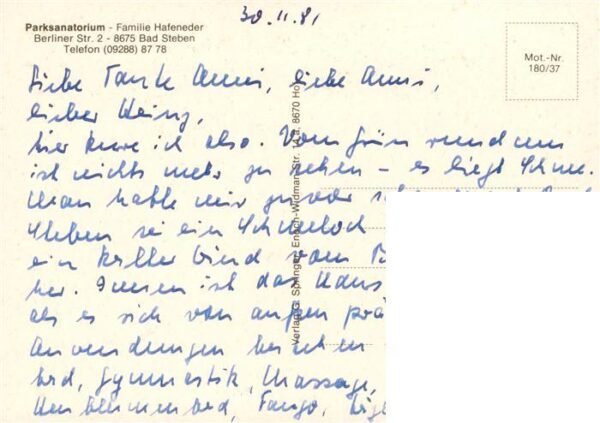 30.11.81
Parksanatorium - Familie Hafeneder
Berliner Str. 2 - 8675 Bad Steben
Telefon (09288) 87 78
Mot.-Nr.
180/37
Liebe Tante Anni, liebe Anni,
lieber Heinz,
hier kure ich also. Vom Grün rundum
ist nichts mehr zu sehen – es liegt Schnee.
Man hatte mir zuvor
Steben sei ein Schneeloch
ein kalter Wind vom
her. Innen ist das Haus
als es sich von außen
Anwendungen bestehen
bad, Gymnastik, Massage,
bad, Fango,
Verlag G. Springer, Enoch-Widman-Str. 8670 Hof